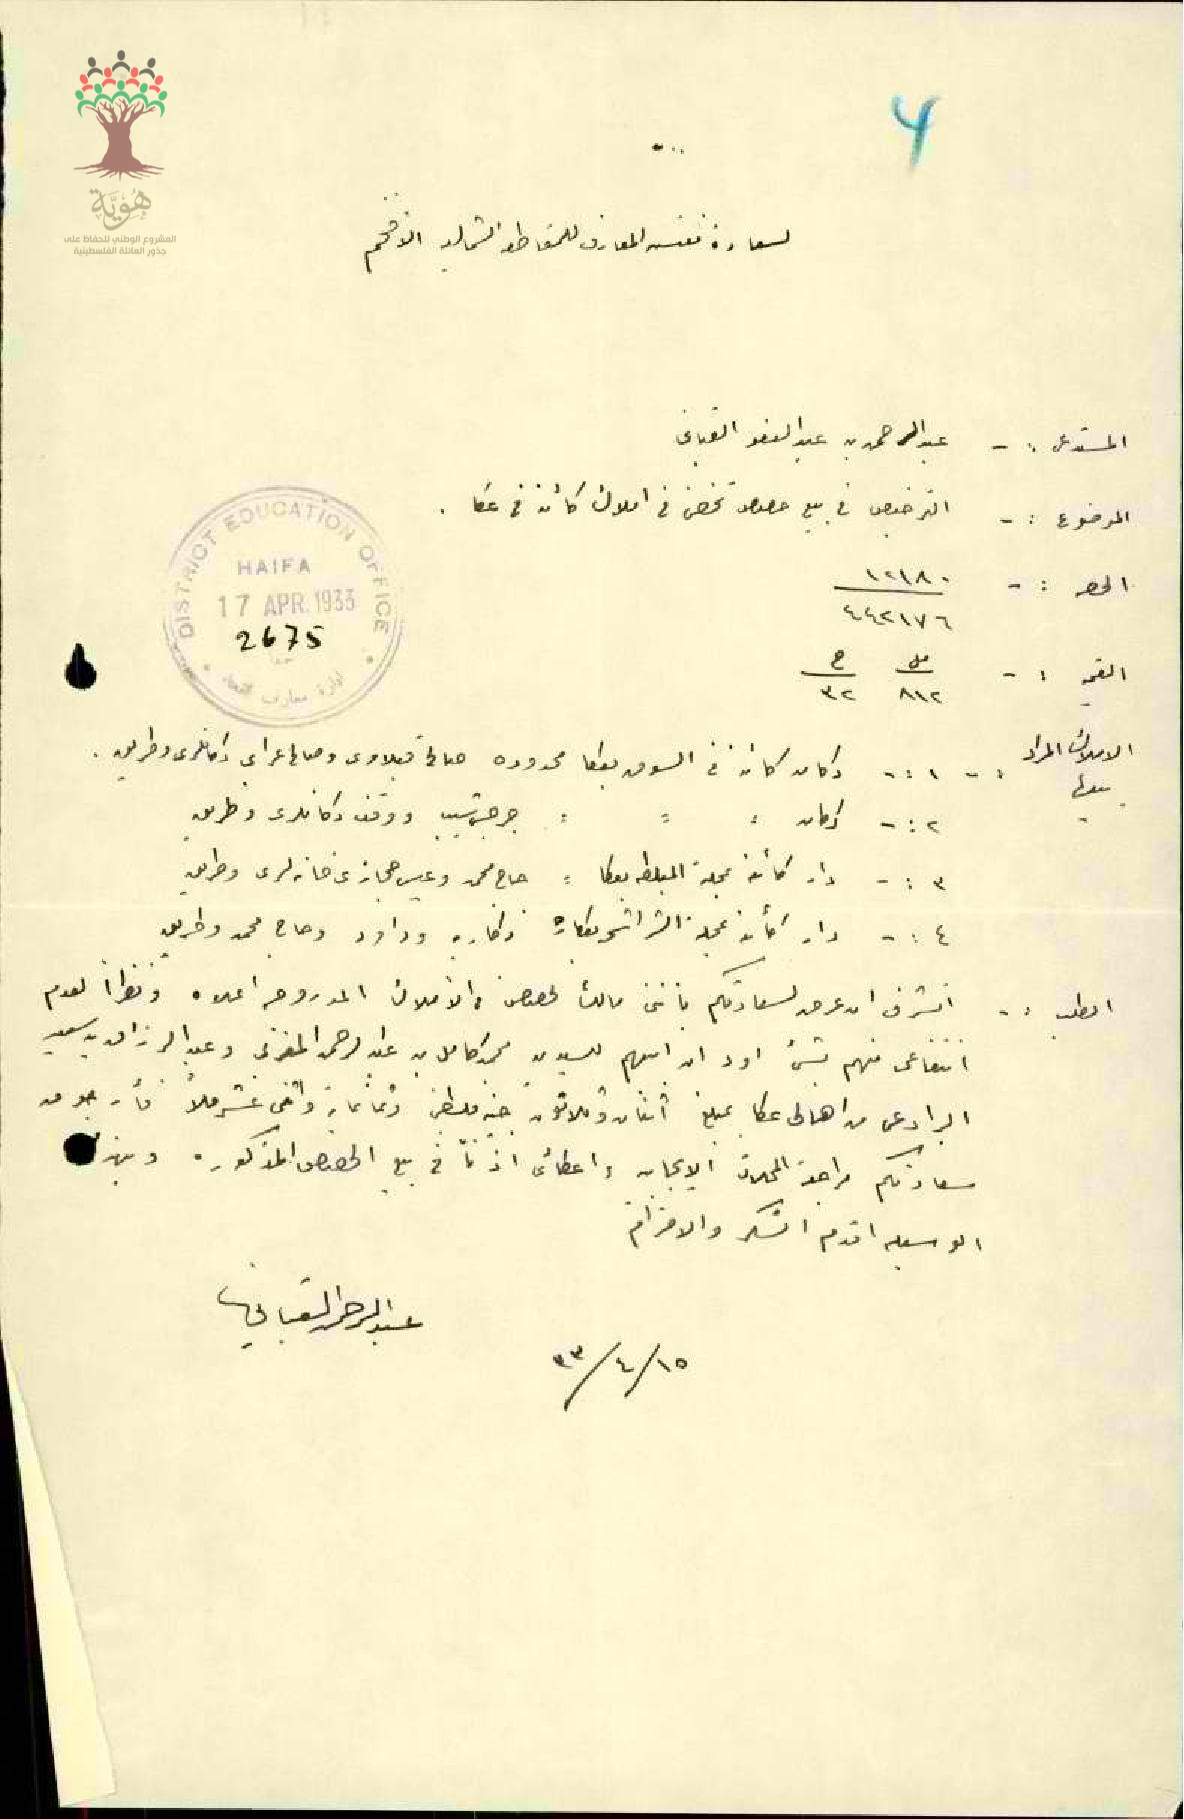 4
هُوِيَّة
المشروع الوطني للحفاظ على
جذور العائلة الفلسطينية
لسعادة مفتش المعارف للمقاطعه الشماليه الافخم
المستدعى :- عبد الرحمن بن عبد العفو القبانى
الموضوع :- الترخيص في بيع حصص تخصنى فى املاك كائنه فى عكا .
DISTRICT EDUCATION OFFICE
HAIFA
17 APR. 1933
2675
الحصه :- ١٢١٨٠
٤٤٢١٧٦
القيمه :- مل ج
٨١٢ ٣٢
الاملاك المراد بيعها :- ١ :- دكان كائنه فى السوق بعكا محدوده صالح قبلاوى وصالح عرابي دكانلرى وطريق .
٢ :- دكان = = = جرجس ووقف دكانلرى وطريق
٣ :- دار كائنه بمحلة المبلطه بعكا = حاج محمد و حجازى خانه لرى وطريق
٤ :- دار كائنه بمحلة بعكا وداود وحاج محمد وطريق
الطلب :- اتشرف ان اعرض لسعادتكم باننى مالك لحصص فى الاملاك المدروجه اعلاه ونظراً لعدم
انتفاعى منهم بشئ اود ان ابيعهم للسيدين محمد كامل بن عبد الرحمن المغربى وعبد الرزاق بن سعيد
من اهالى عكا بمبلغ أثنان وثلاثون جنيه فلسطينى وثمانماية واثنى عشر ملاً فأرجو من
سعادتكم مراجعة المحلات الايجابيه واعطائى اذناً في بيع الحصص المذكوره وبهذه
الوسيله اقدم الشكر والاحترام
عبد الرحمن القباني
١٥/٤/٣٣